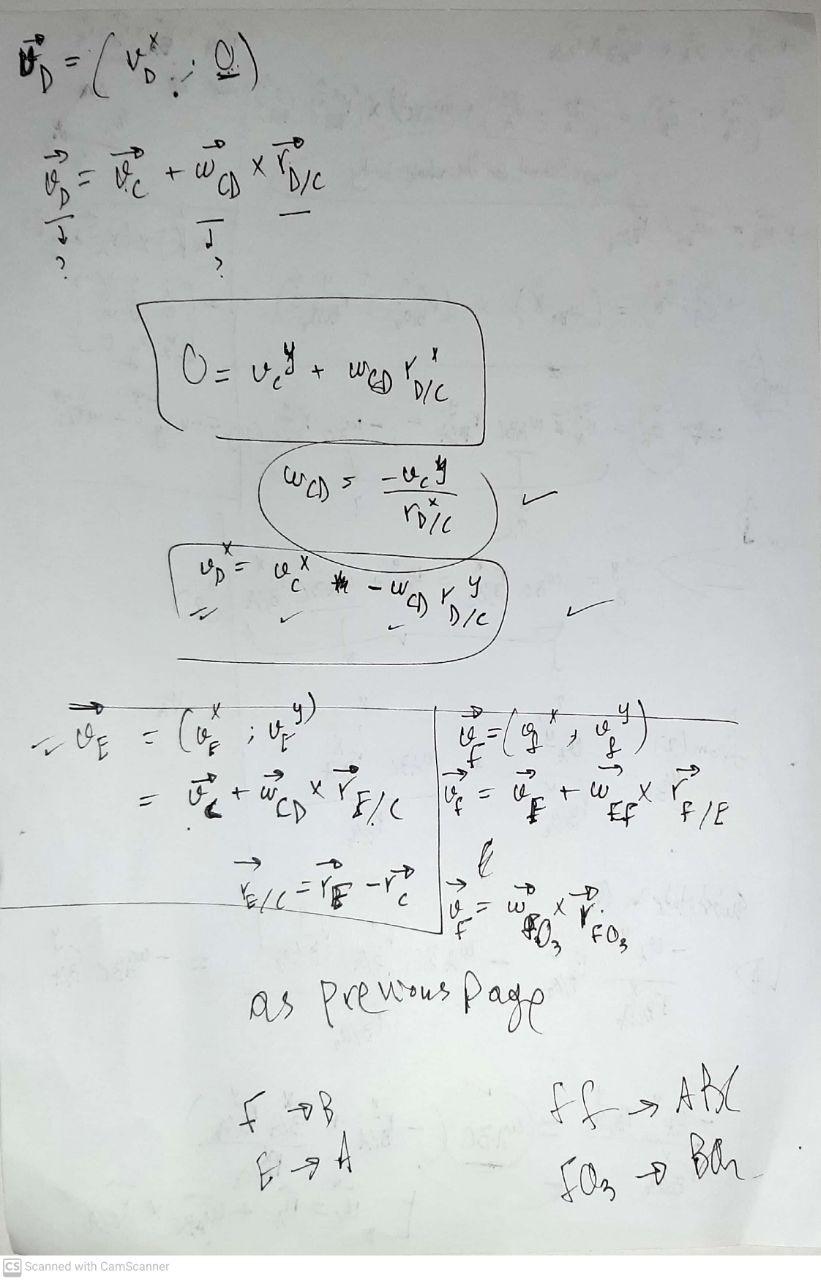 v⃗_D = ( v_D^x ; 0 )
v⃗_D = v⃗_C + ω⃗_CD × r⃗_D/C
? ?
0 = v_C^y + ω_CD r_D/C^x
ω_CD = -v_C^y / r_D/C^x ✓
v_D^x = v_C^x - ω_CD r_D/C^y ✓
v⃗_E = (v_E^x ; v_E^y)
= v⃗_C + ω⃗_CD × r⃗_E/C
r⃗_E/C = r⃗_E - r⃗_C
v⃗_f = (v_f^x , v_f^y)
v⃗_f = v⃗_E + ω⃗_Ef × r⃗_f/E
v⃗_f = ω⃗_fO₃ × r⃗_fO₃
as previous page
f → B
E → A
ff → ABC
fO₃ → BO₂
CS Scanned with CamScanner